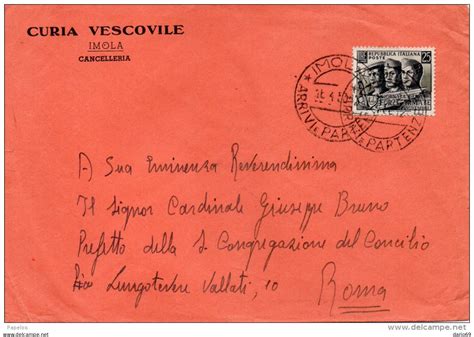 CURIA VESCOVILE
IMOLA
CANCELLERIA
REPVBBLICA ITALIANA
POSTE
25
IMOLA
ARRIVI E PARTENZE
A Sua Eminenza Reverendissima
Il Signor Cardinale Giuseppe Bruno
Prefetto della S Congregazione del Concilio
Via Lungotevere Vallati, 10
Roma
Papelos
http://www.delcampe.net
dario69